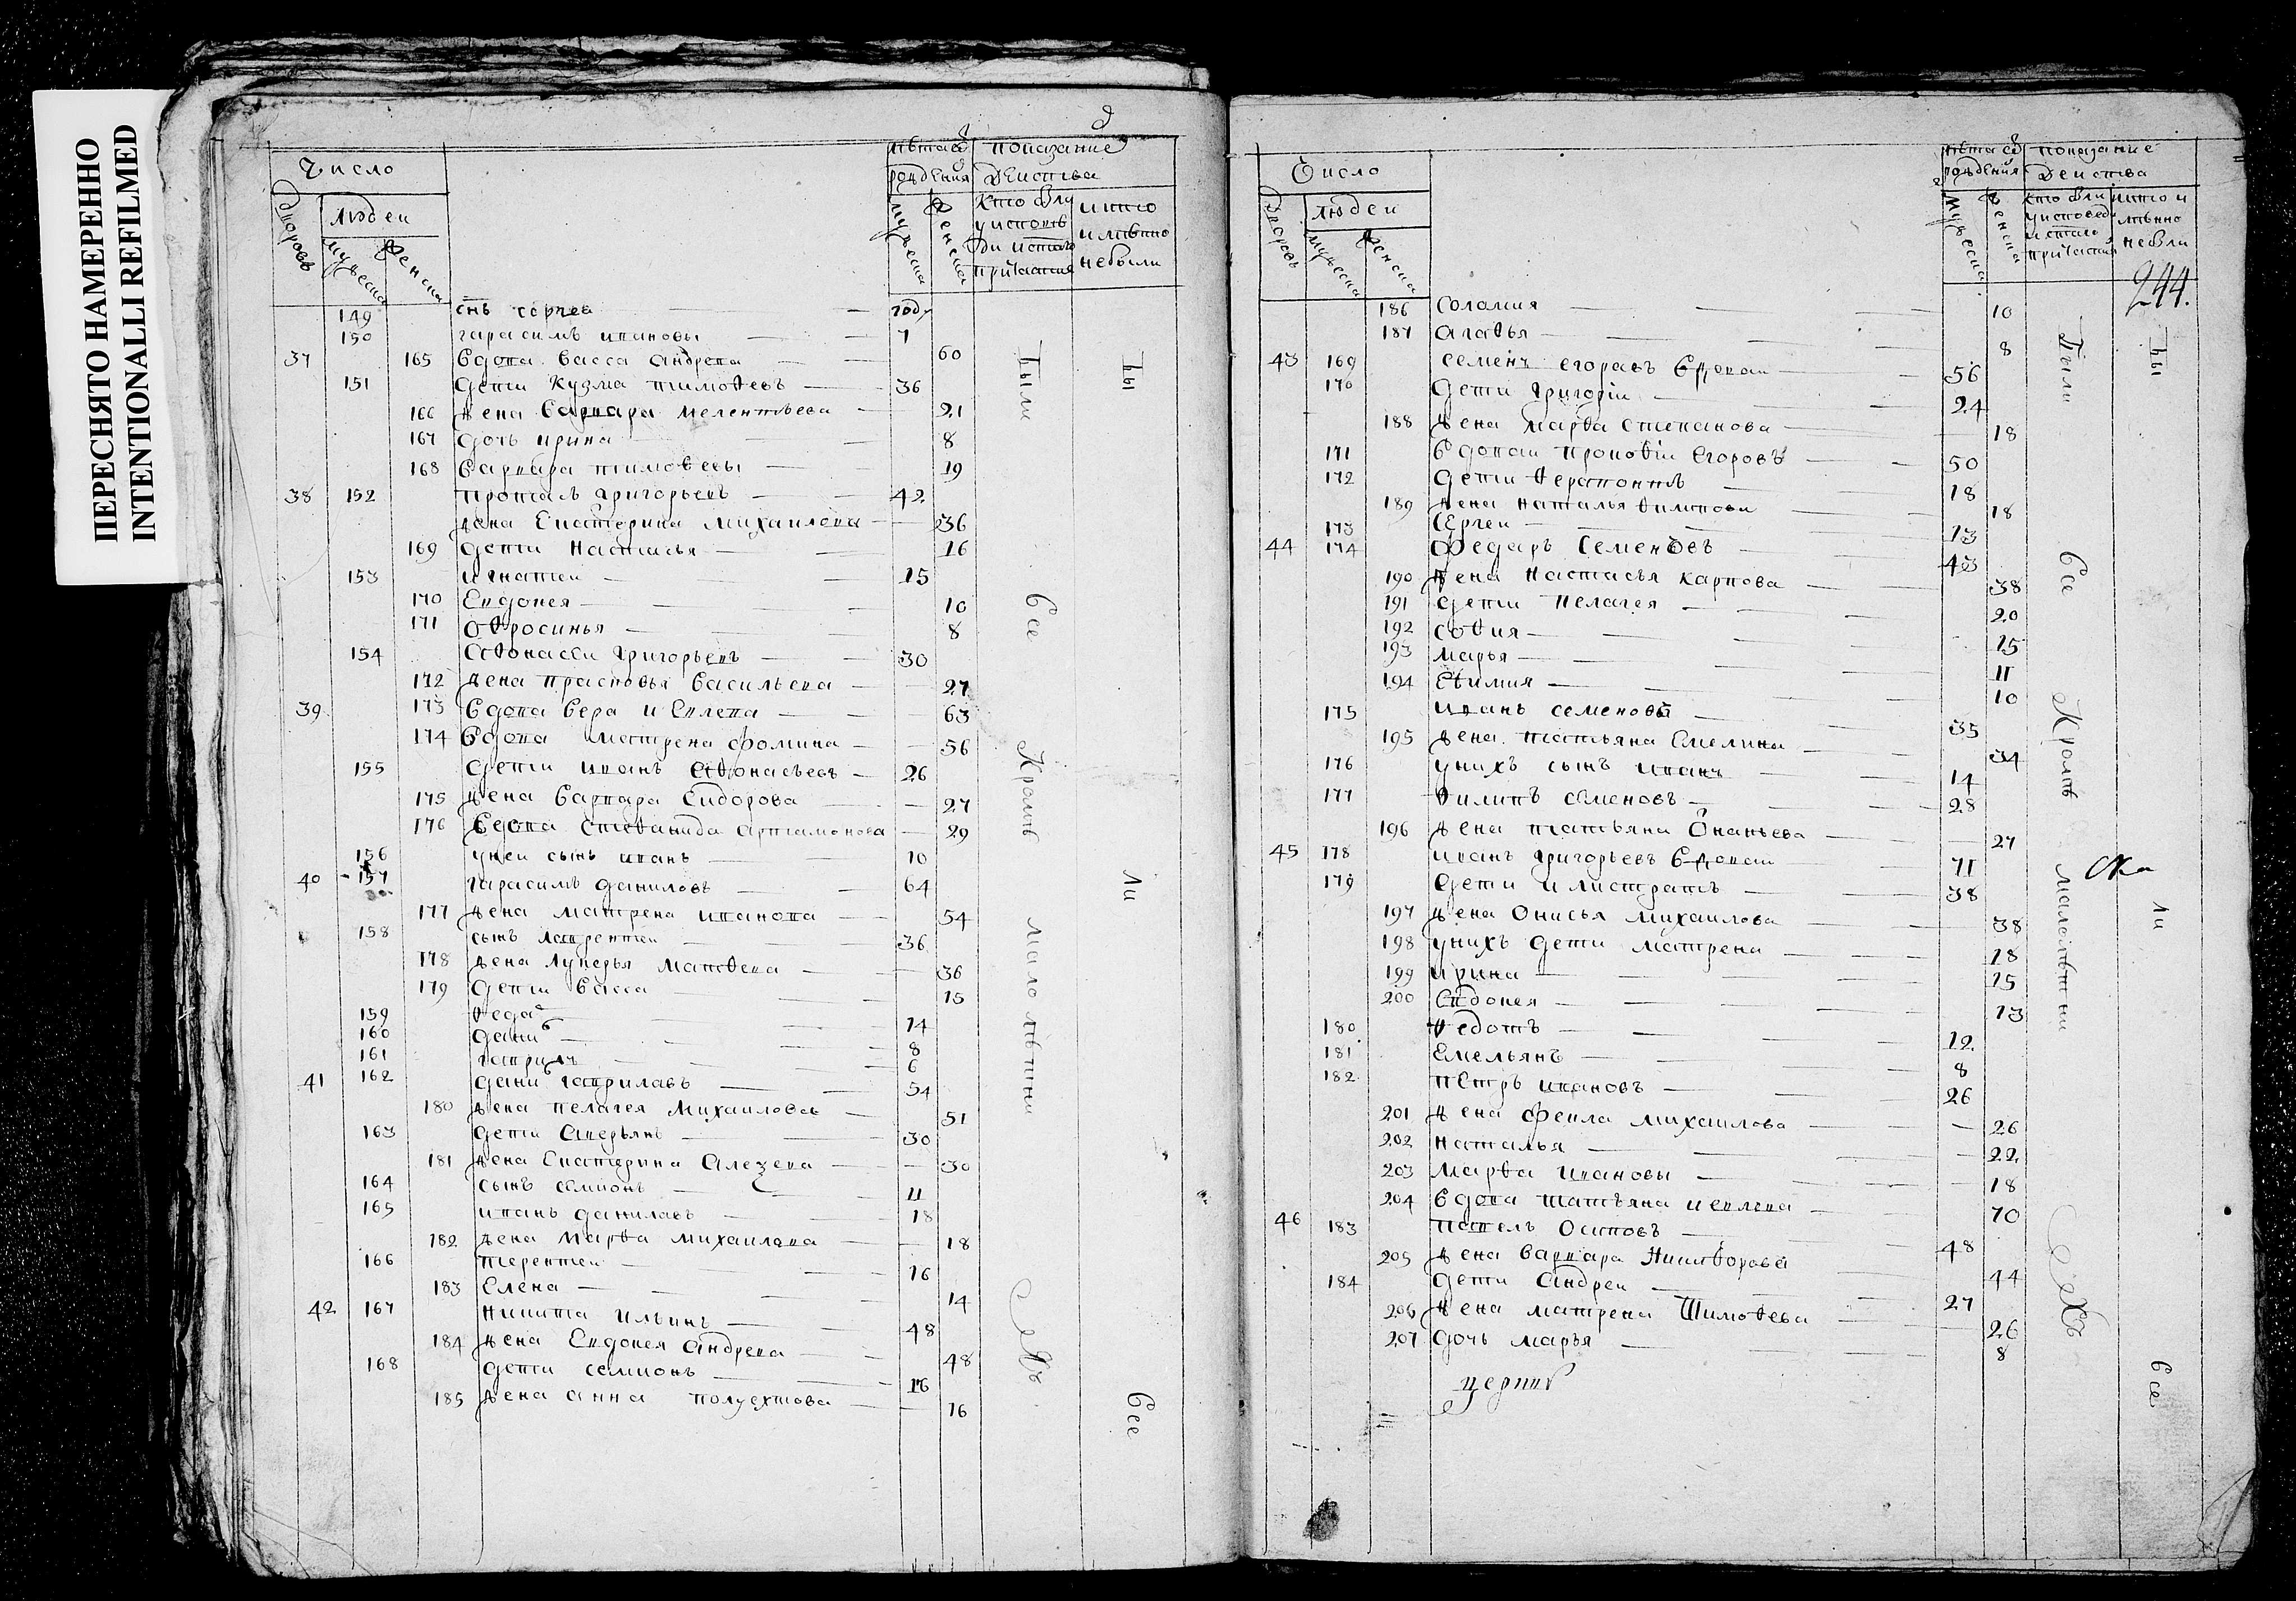 ПЕРЕСНЯТО НАМЕРЕННО
INTENTIONALLI REFILMED
Число
людеи
показание
149 снъ сергеа году
150 гарасимъ ивановы 7
37 165 вдова васса андрева 60
151 дети кузма тимоѳеевъ 36
166 жена варвара мелентьева 21
167 дочь ирина 8
168 варвара тимоѳевы 19
38 152 григорьевъ 42
жена екатерина михаилова 36
169 дети настасья 16
153 игнатеи 15
170 евдокея 10
171 оѳросинья 8
154 аѳонасеи григорьевъ 30
172 жена прасковья васильева 27
39 173 вдова вера иевлева 63
174 вдова матрена фомина 56
155 дети иванъ аѳонасьевъ 26
175 жена варвара сидорова 27
176 вдова стеѳанида артамонова 29
156 унеи сынъ иванъ 10
40 157 гарасимъ даниловъ 64
177 жена матрена иванова 54
158 сынъ лаврентеи 36
178 жена лукерья матѳева 36
179 дети васса 15
159 ѳеда 14
160 дани 8
161 гаврилъ 6
41 162 дани гавриловъ 54
180 жена пелагея михаилова 51
163 дети аверьянъ 30
181 жена екатерина алезева 30
164 сынъ семионъ 11
165 иванъ даниловъ 18
182 жена марѳа михаилова 18
166 терентеи 16
183 елена 14
42 167 никита ильинъ 48
184 жена евдокея андрева 48
168 дети семионъ 16
185 жена анна полуехтова 16
Были
все
Кроме
малолетни
ли
все
Число
людеи
показание
244.
186 соломия 10
187 агаѳья 8
43 169 семенъ егоравъ вдоваи 56
170 дети григорiи 24
188 жена марѳа степанова 18
171 вдоваи прокоѳiи егоровъ 50
172 дети ѳерапонтъ 18
189 жена наталья ѳилипова 18
173 сергеи 13
44 174 федаръ семеновъ 43
190 жена настасья карпова 38
191 дети пелагея 20
192 соѳия 15
193 марья 11
194 еѳимия 10
175 иванъ семеновъ 35
195 жена татьяна емелина 34
176 унихъ сынъ иванъ 14
177 ѳилипъ семеновъ 28
196 жена татьяна ононьева 27
45 178 иванъ григорьевъ вдоваи 71
179 дети илистратъ 38
197 жена онисья михаилова 38
198 унихъ дети матрена 18
199 ирина 15
200 евдокея 13
180 ѳедотъ 12
181 емельянъ 8
182 петръ ивановъ 26
201 жена фекла михаилова 26
202 наталья 22
203 марѳа ивановы 18
204 вдова татьяна иевлева 70
46 183 павелъ осиповъ 48
205 жена варвара никиѳорова 44
184 дети андреи 27
206 жена матрена тимоѳева 26
207 дочь марья 8
Были
все
Кроме
малолетни
ли
все